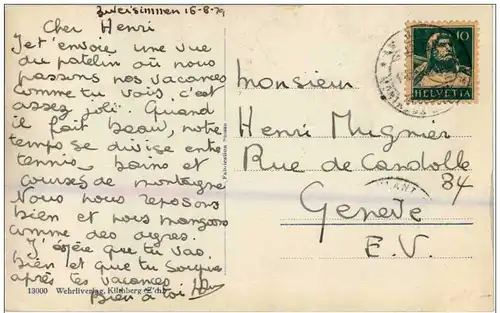 Zweisimmen 16-8-29
Cher Henri
Je t'envoie une vue
du patelin où nous
passons nos vacances
comme tu vois, c'est
assez joli. Quand
il fait beau, notre
temps se divise entre
tennis, bains et
courses de montagne
Nous nous reposons
bien et nous mangeons
comme des ogres.
J'espère que tu vas
bien et que tu soupires
après tes vacances
Bien à toi
13000 Wehrliverlag, Kilchberg (Zch.)
10
HELVETIA
Monsieur
Henri Mugnier
Rue de Candolle
34
Genève
E.V.